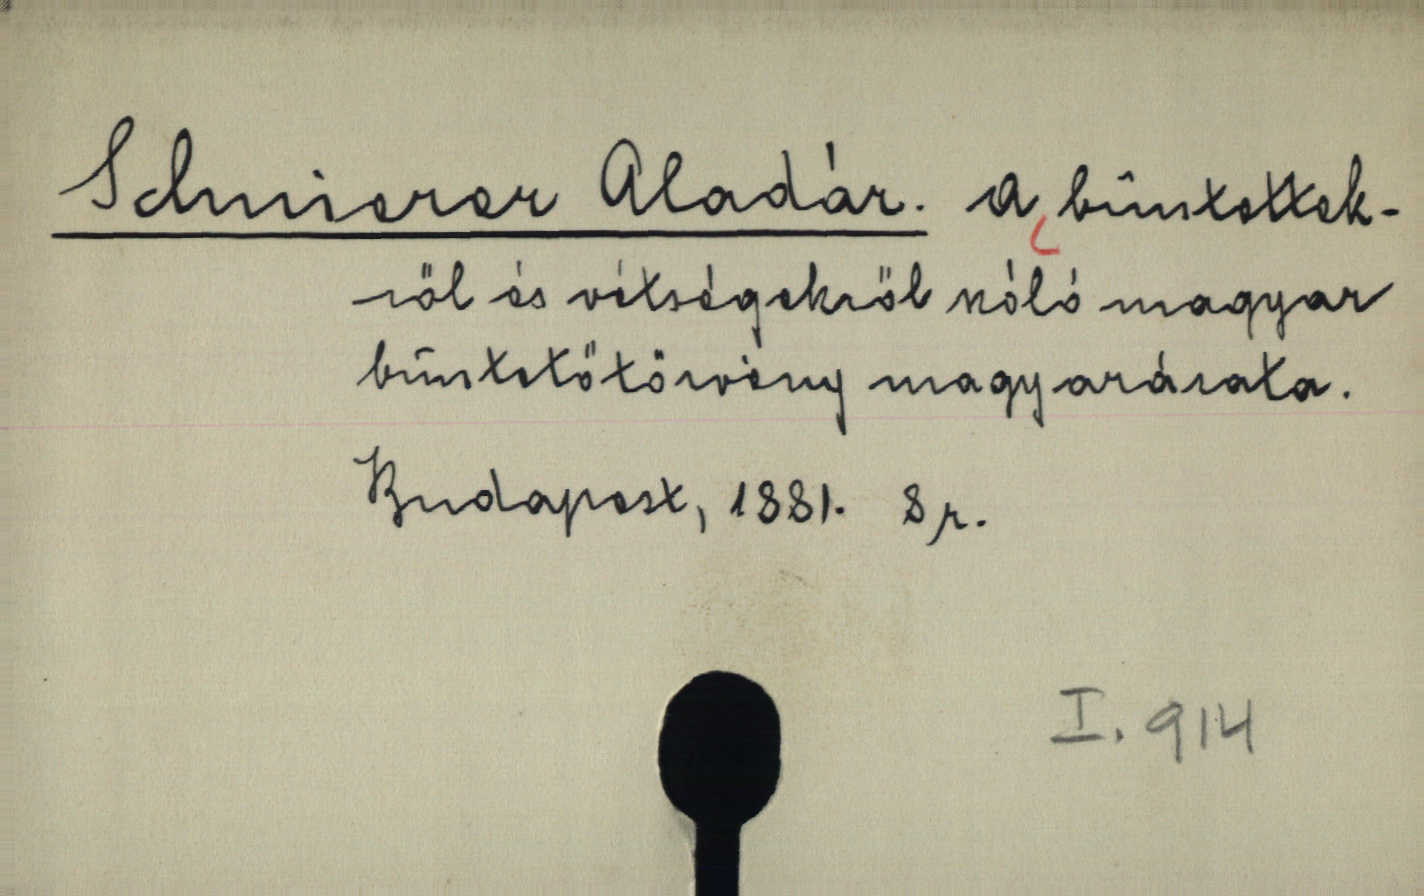 Schnierer Aladár. A büntettek-
ről és vétségekről szóló magyar
büntetőtörvény magyarázata.
Budapest, 1881. 8r.
I. 914